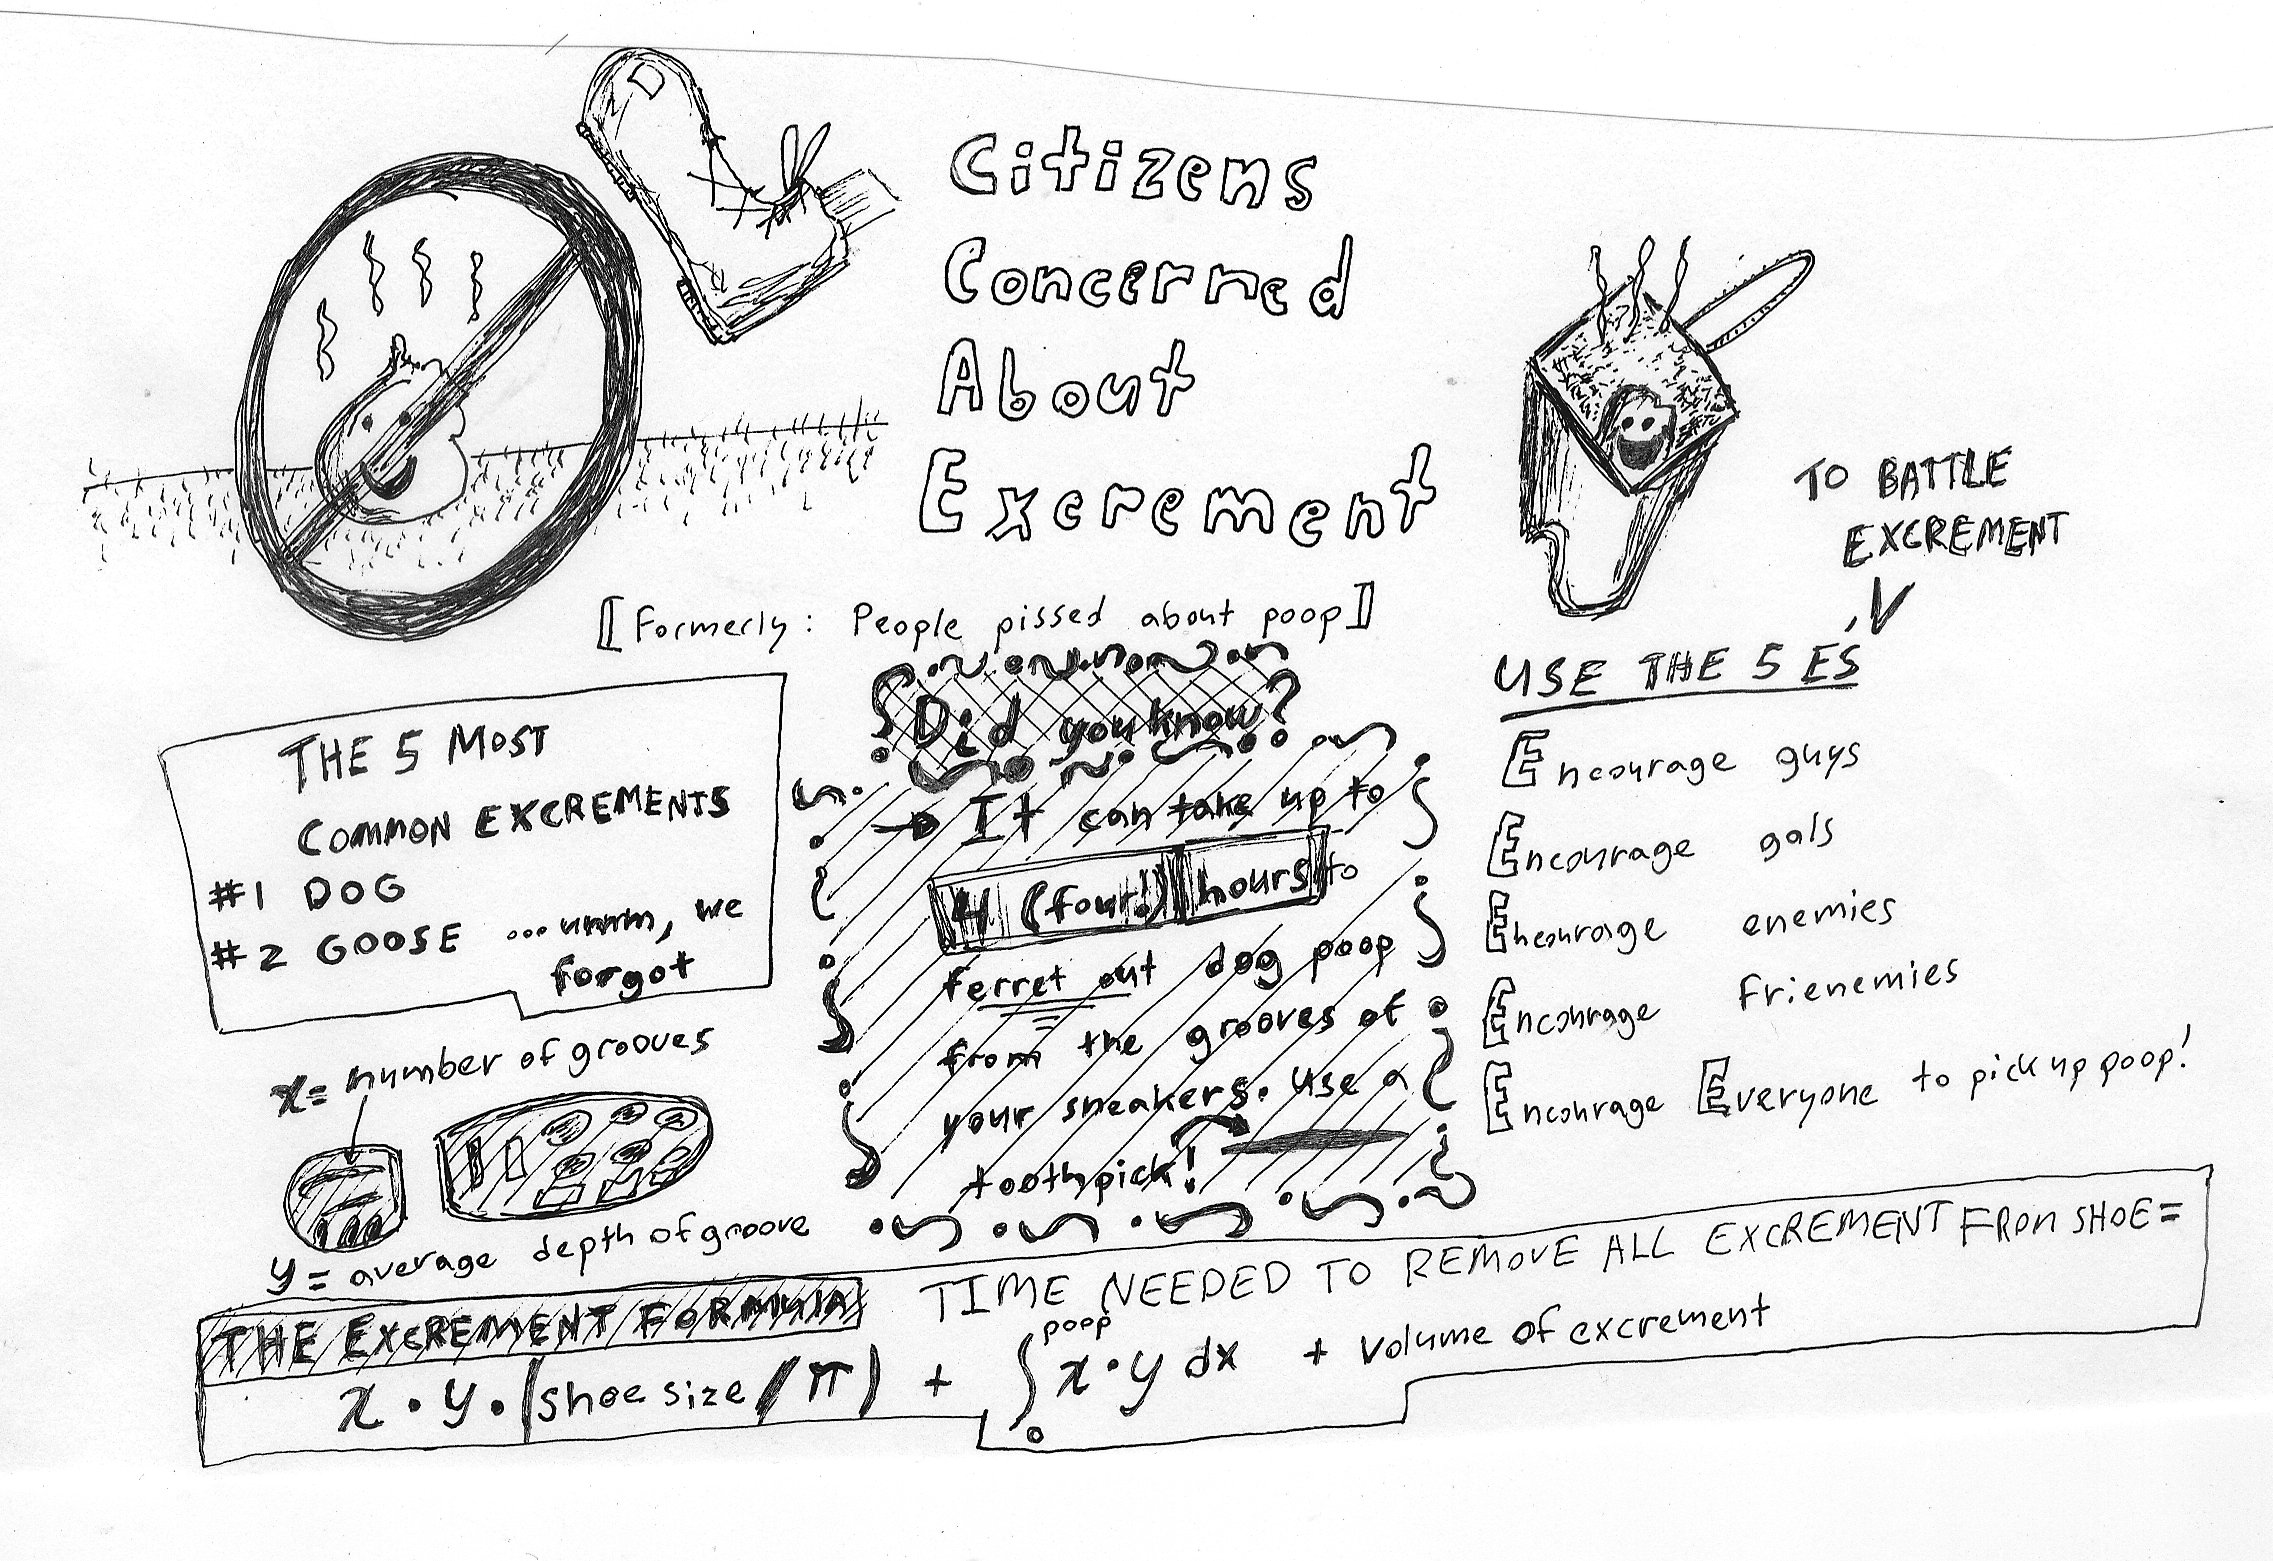 Citizens
Concerned
About
Excrement
[Formerly: People pissed about poop]
THE 5 MOST
COMMON EXCREMENTS
#1 DOG
#2 GOOSE ...umm, we
forgot
x= number of grooves
y= average depth of groove
Did you know?
→ It can take up to
4 (four!) hours to
ferret out dog poop
from the grooves of
your sneakers. Use a
toothpick!
TO BATTLE
EXCREMENT
USE THE 5 E'S
Encourage guys
Encourage gals
Encourage enemies
Encourage frienemies
Encourage Everyone to pick up poop!
THE EXCREMENT FORMULA
TIME NEEDED TO REMOVE ALL EXCREMENT FROM SHOE=
x · y · (shoe size / π) + ∫₀ᵖᵒᵒᵖ x · y dx + volume of excrement